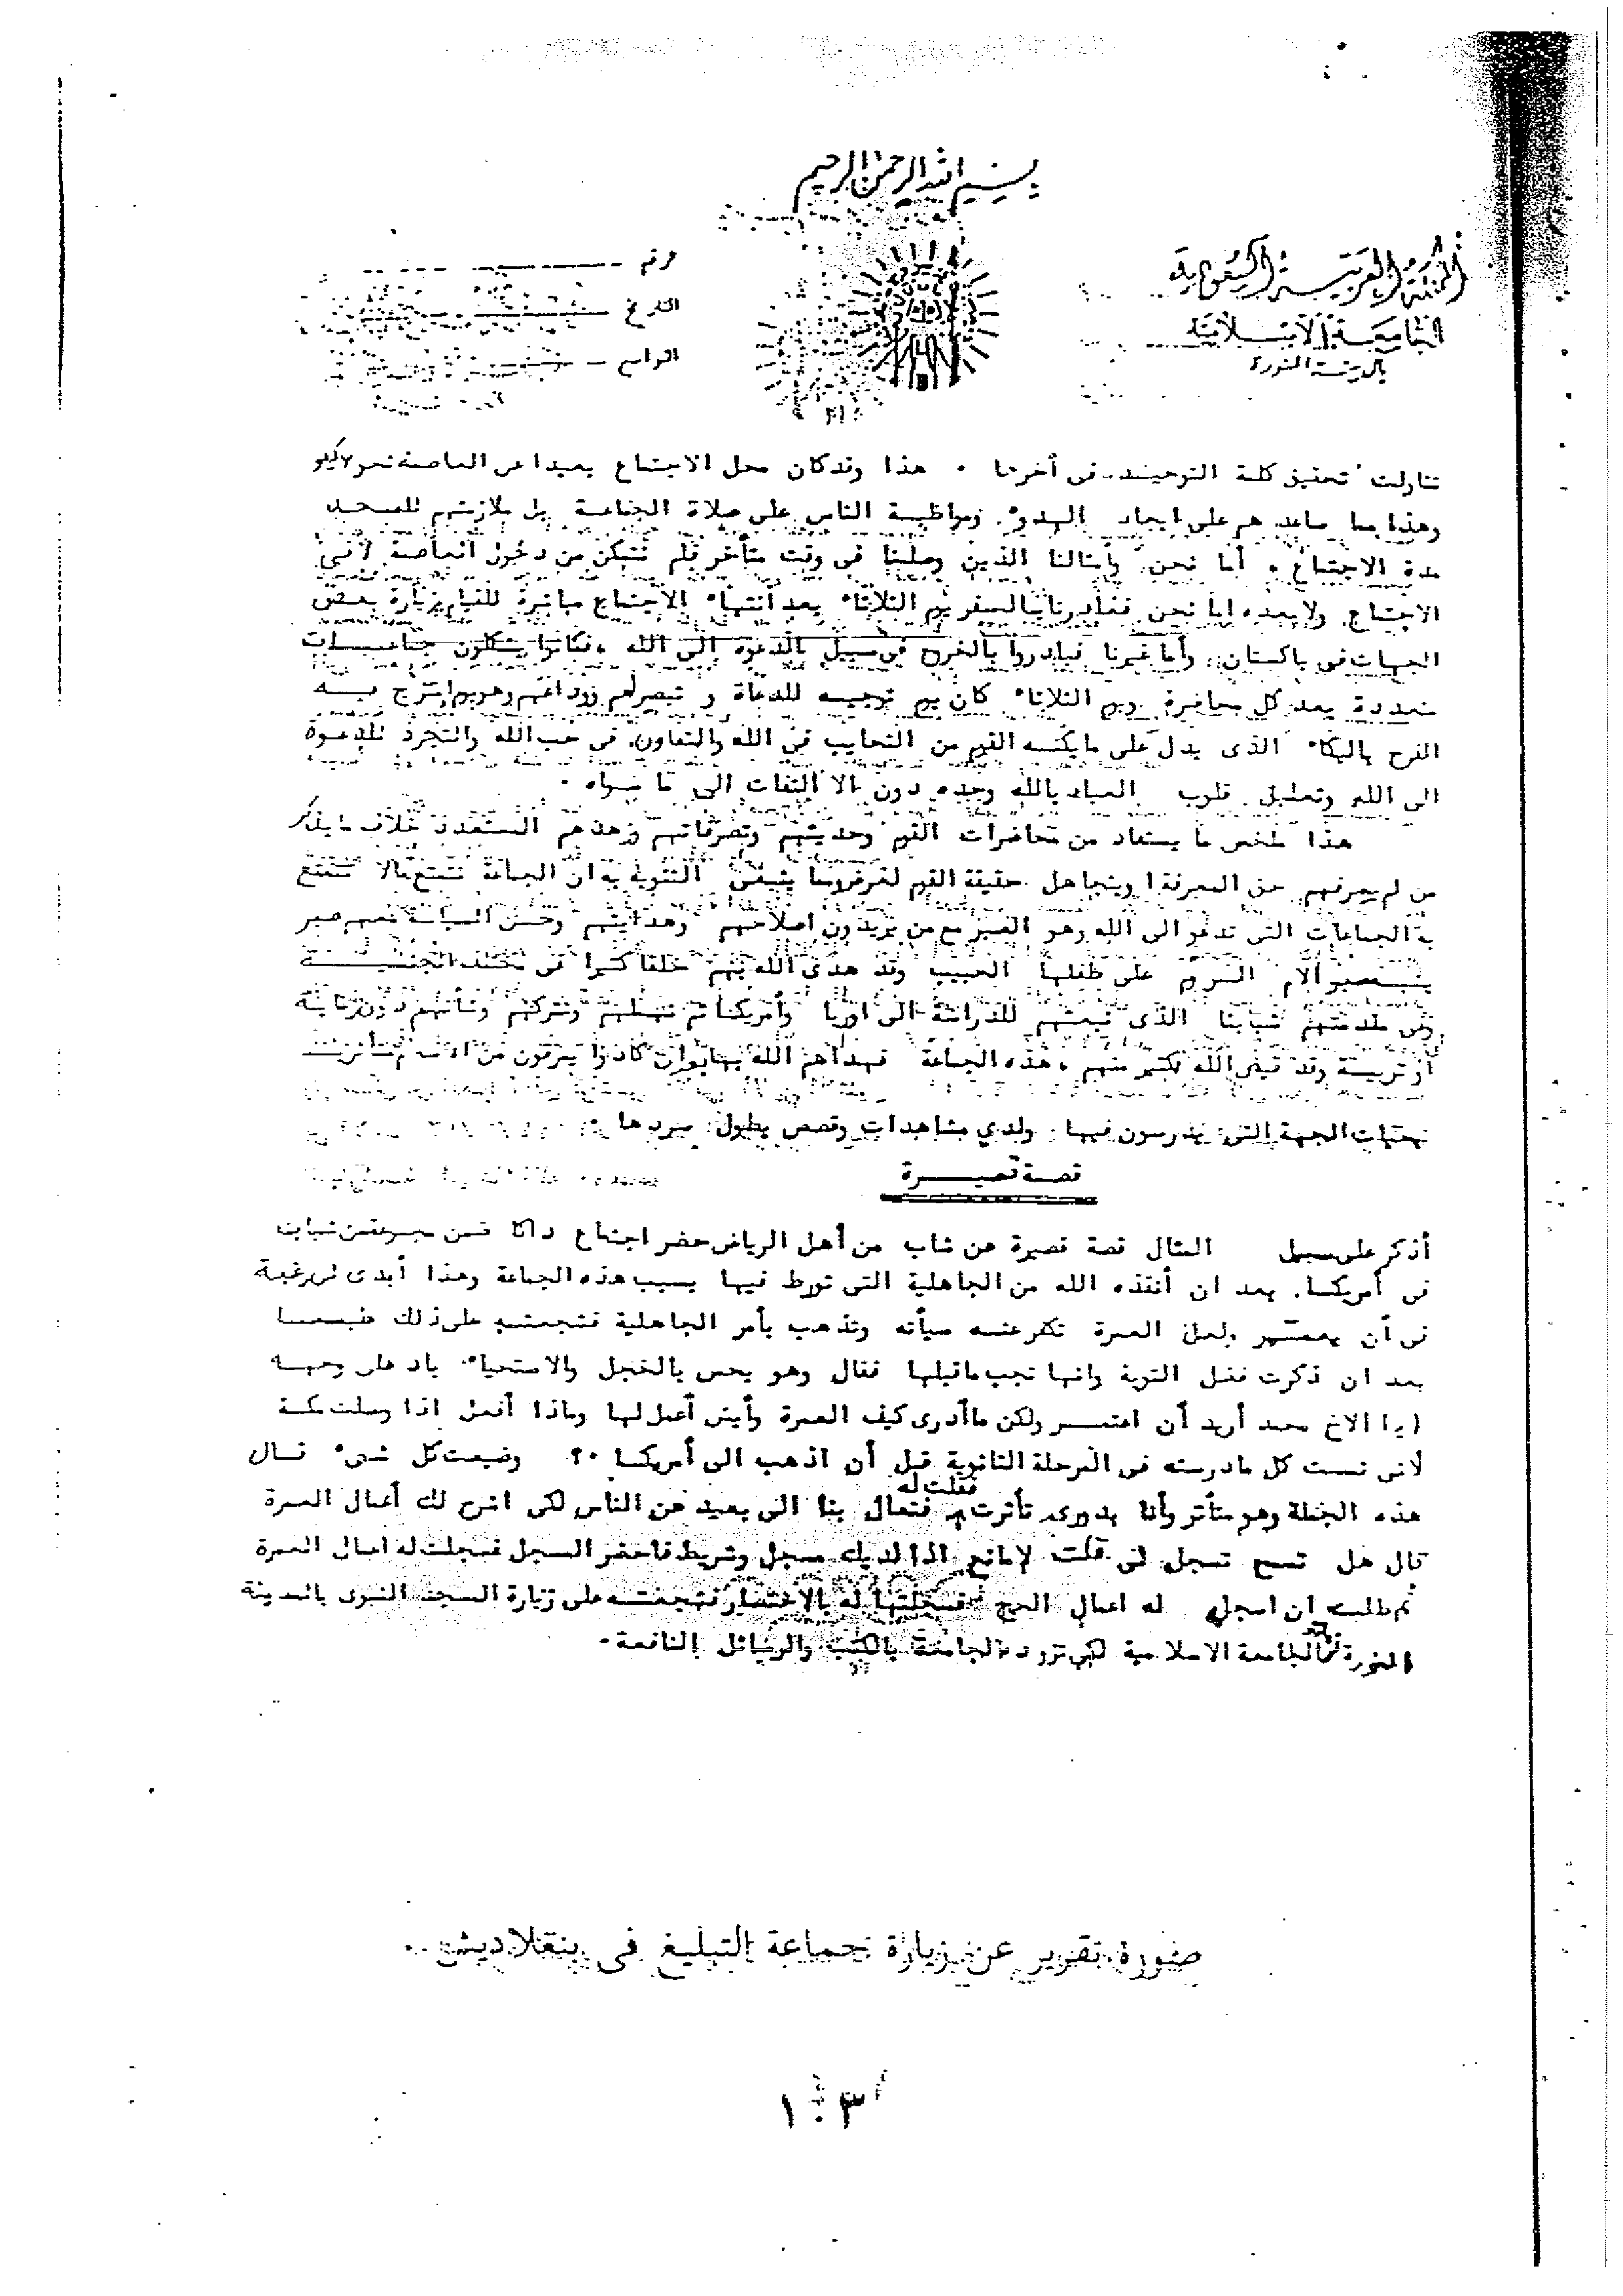 بسم الله الرحمن الرحيم
المملكة العربية السعودية
الجامعة الاسلامية
بالمدينة المنورة
الرقم
التاريخ
تناولت تحقيق كلمة التوحيد في أخرها . هذا وقد كان محل الاجتماع بعيدا عن العاصمة نحو
وهذا مما ساعد هم على ايجاد الهدوء ومواظبة الناس على صلاة الجماعة بل ملازمتهم للمسجد
مدة الاجتماع . أما نحن وأمثالنا الذين وصلنا في وقت متأخر فلم نتمكن من دخول العاصمة لا في
الاجتماع ولا بعده اما نحن فغادرنا بالسفر يوم الثلاثاء بعد أنتهاء الاجتماع مباشرة للقيام بزيارة بعض
الجهات في باكستان وأما غيرنا فبادروا بالخروج في سبيل الدعوة إلى الله فكانوا يشكلون جماعات
متعددة بعد كل محاضرة ويوم الثلاثاء كان يوم توجيه للدعاة و وهو يوم امتزج فيه
الفرح بالبكاء الذى يدل على ما يكنه القوم من التحابب في الله والتعاون في حب الله والتجرد للدعوة
الى الله وتعليق قلوب العباد بالله وحده دون الالتفات الى ما سواه .
هذا ملخص ما يستفاد من محاضرات القوم وحديثهم وتصرفاتهم خلاف ما يذكر
من لم يعرفهم حق المعرفة او يتجاهل حقيقة القوم لغرض ومما ينبغى التنويه به ان الجماعة تتمتع بمالا تتمتع
به الجماعات التى تدعو الى الله وهو الصبر مع من يريدون اصلاحهم وهدايتهم وحسن السياسة معهم صبر
يشبه صبر الأم على طفلها الحبيب وقد هدى الله بهم خلقا كثيرا في مختلف
وفي مقدمتهم شبابنا الذى نبعثهم للدراسة الى اوربا وأمريكا ثم نهملهم ونتركهم وشأنهم دون رعاية
أو تربية وقد قيض الله لكثير منهم هذه الجماعة فهداهم الله بها وان كادوا يمرقون من
الجهة التى يدرسون فيها . ولدي مشاهدات وقصص يطول سردها .
قصة قصيرة
أذكر على سبيل المثال قصة قصيرة عن شاب من أهل الرياض حضر اجتماع داكا ضمن
فى أمريكا . بعد ان أنقذه الله من الجاهلية التى تورط فيها بسبب هذه الجماعة وهذا أبدى لى رغبة
فى أن يعتمر ولعل العمرة تكفر عنه سيأته وتذهب بأمر الجاهلية فشجعته على ذلك طبعا
بعد ان ذكرت فضل التوبة وانها تجب ماقبلها فقال وهو يحس بالخجل والاستحياء باد على وجهه
يا الاخ محمد أريد أن اعتمر ولكن ماأدرى كيف العمرة وأيش أعمل لها وماذا أفعل اذا وصلت مكة
لانى نسيت كل مادرسته في المرحلة الثانوية قبل أن اذهب الى أمريكا ٠؟ وضيعت كل شىء قال
هذه الجملة وهو متأثر وأنا بدورى تأثرت فقلت له فتعال بنا الى بعيد عن الناس لكى اشرح لك أعمال العمرة
قال هل تسمح تسجل لى قلت لا مانع اذا لديك مسجل وشريط فاحضر المسجل فسجلت له اعمال العمرة
ثم طلب ان اسجل له اعمال الحج فسجلتها له بالاختصار فشجعته على زيارة المسجد النبوى بالمدينة
المنورة الجامعة الاسلامية لكي تزوده الجامعة بالكتب والرسائل النافعة .
صورة تقرير عن زيارة جماعة التبليغ في بنغلاديش .